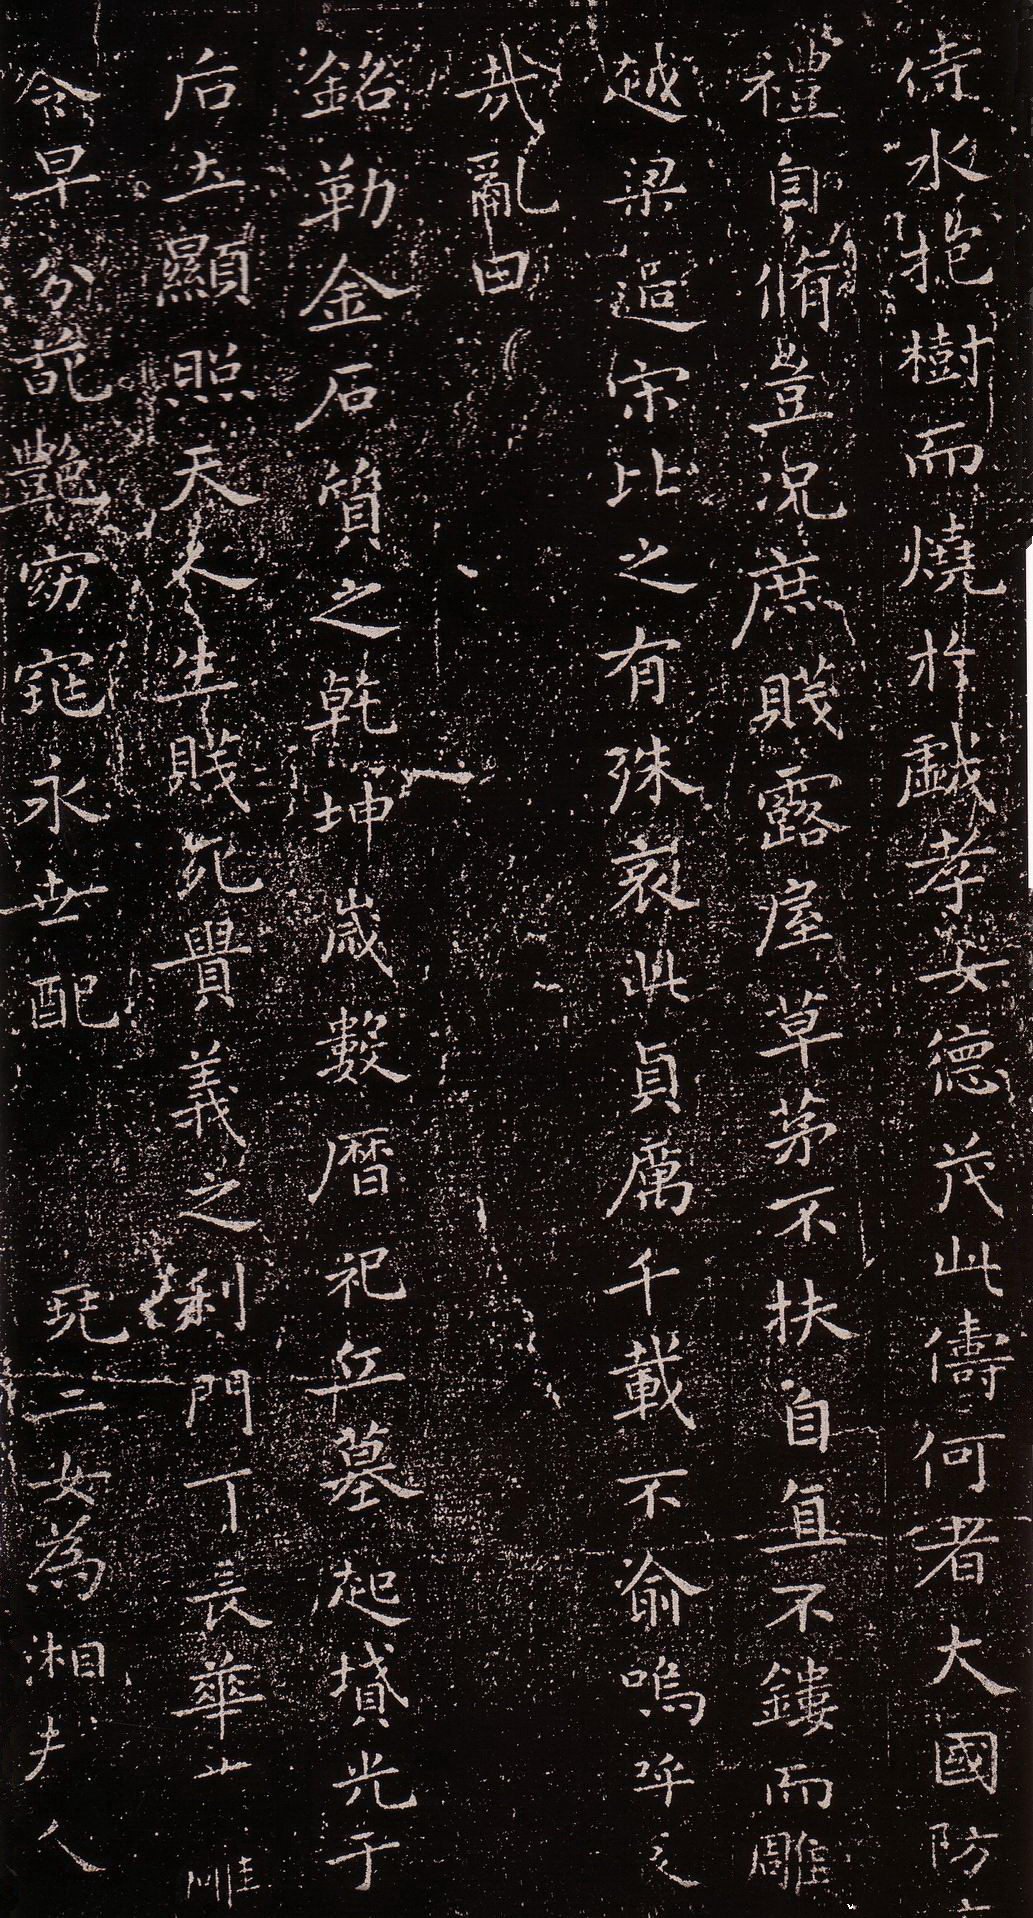 侍水抱樹而燒於戲孝女德茂此儔何者大國防
禮自脩豈況庶賤露屋草茅不扶自直不鏤而雕
越梁過宋比之有殊哀此貞厲千載不渝嗚呼
哀哉亂曰
銘勒金石質之乾坤歲數曆祀丘墓起墳光于
后土顯照天人生賤死貴義之利門何長華落雕
零早分葩艷窈窕永世配神若堯二女為湘夫人